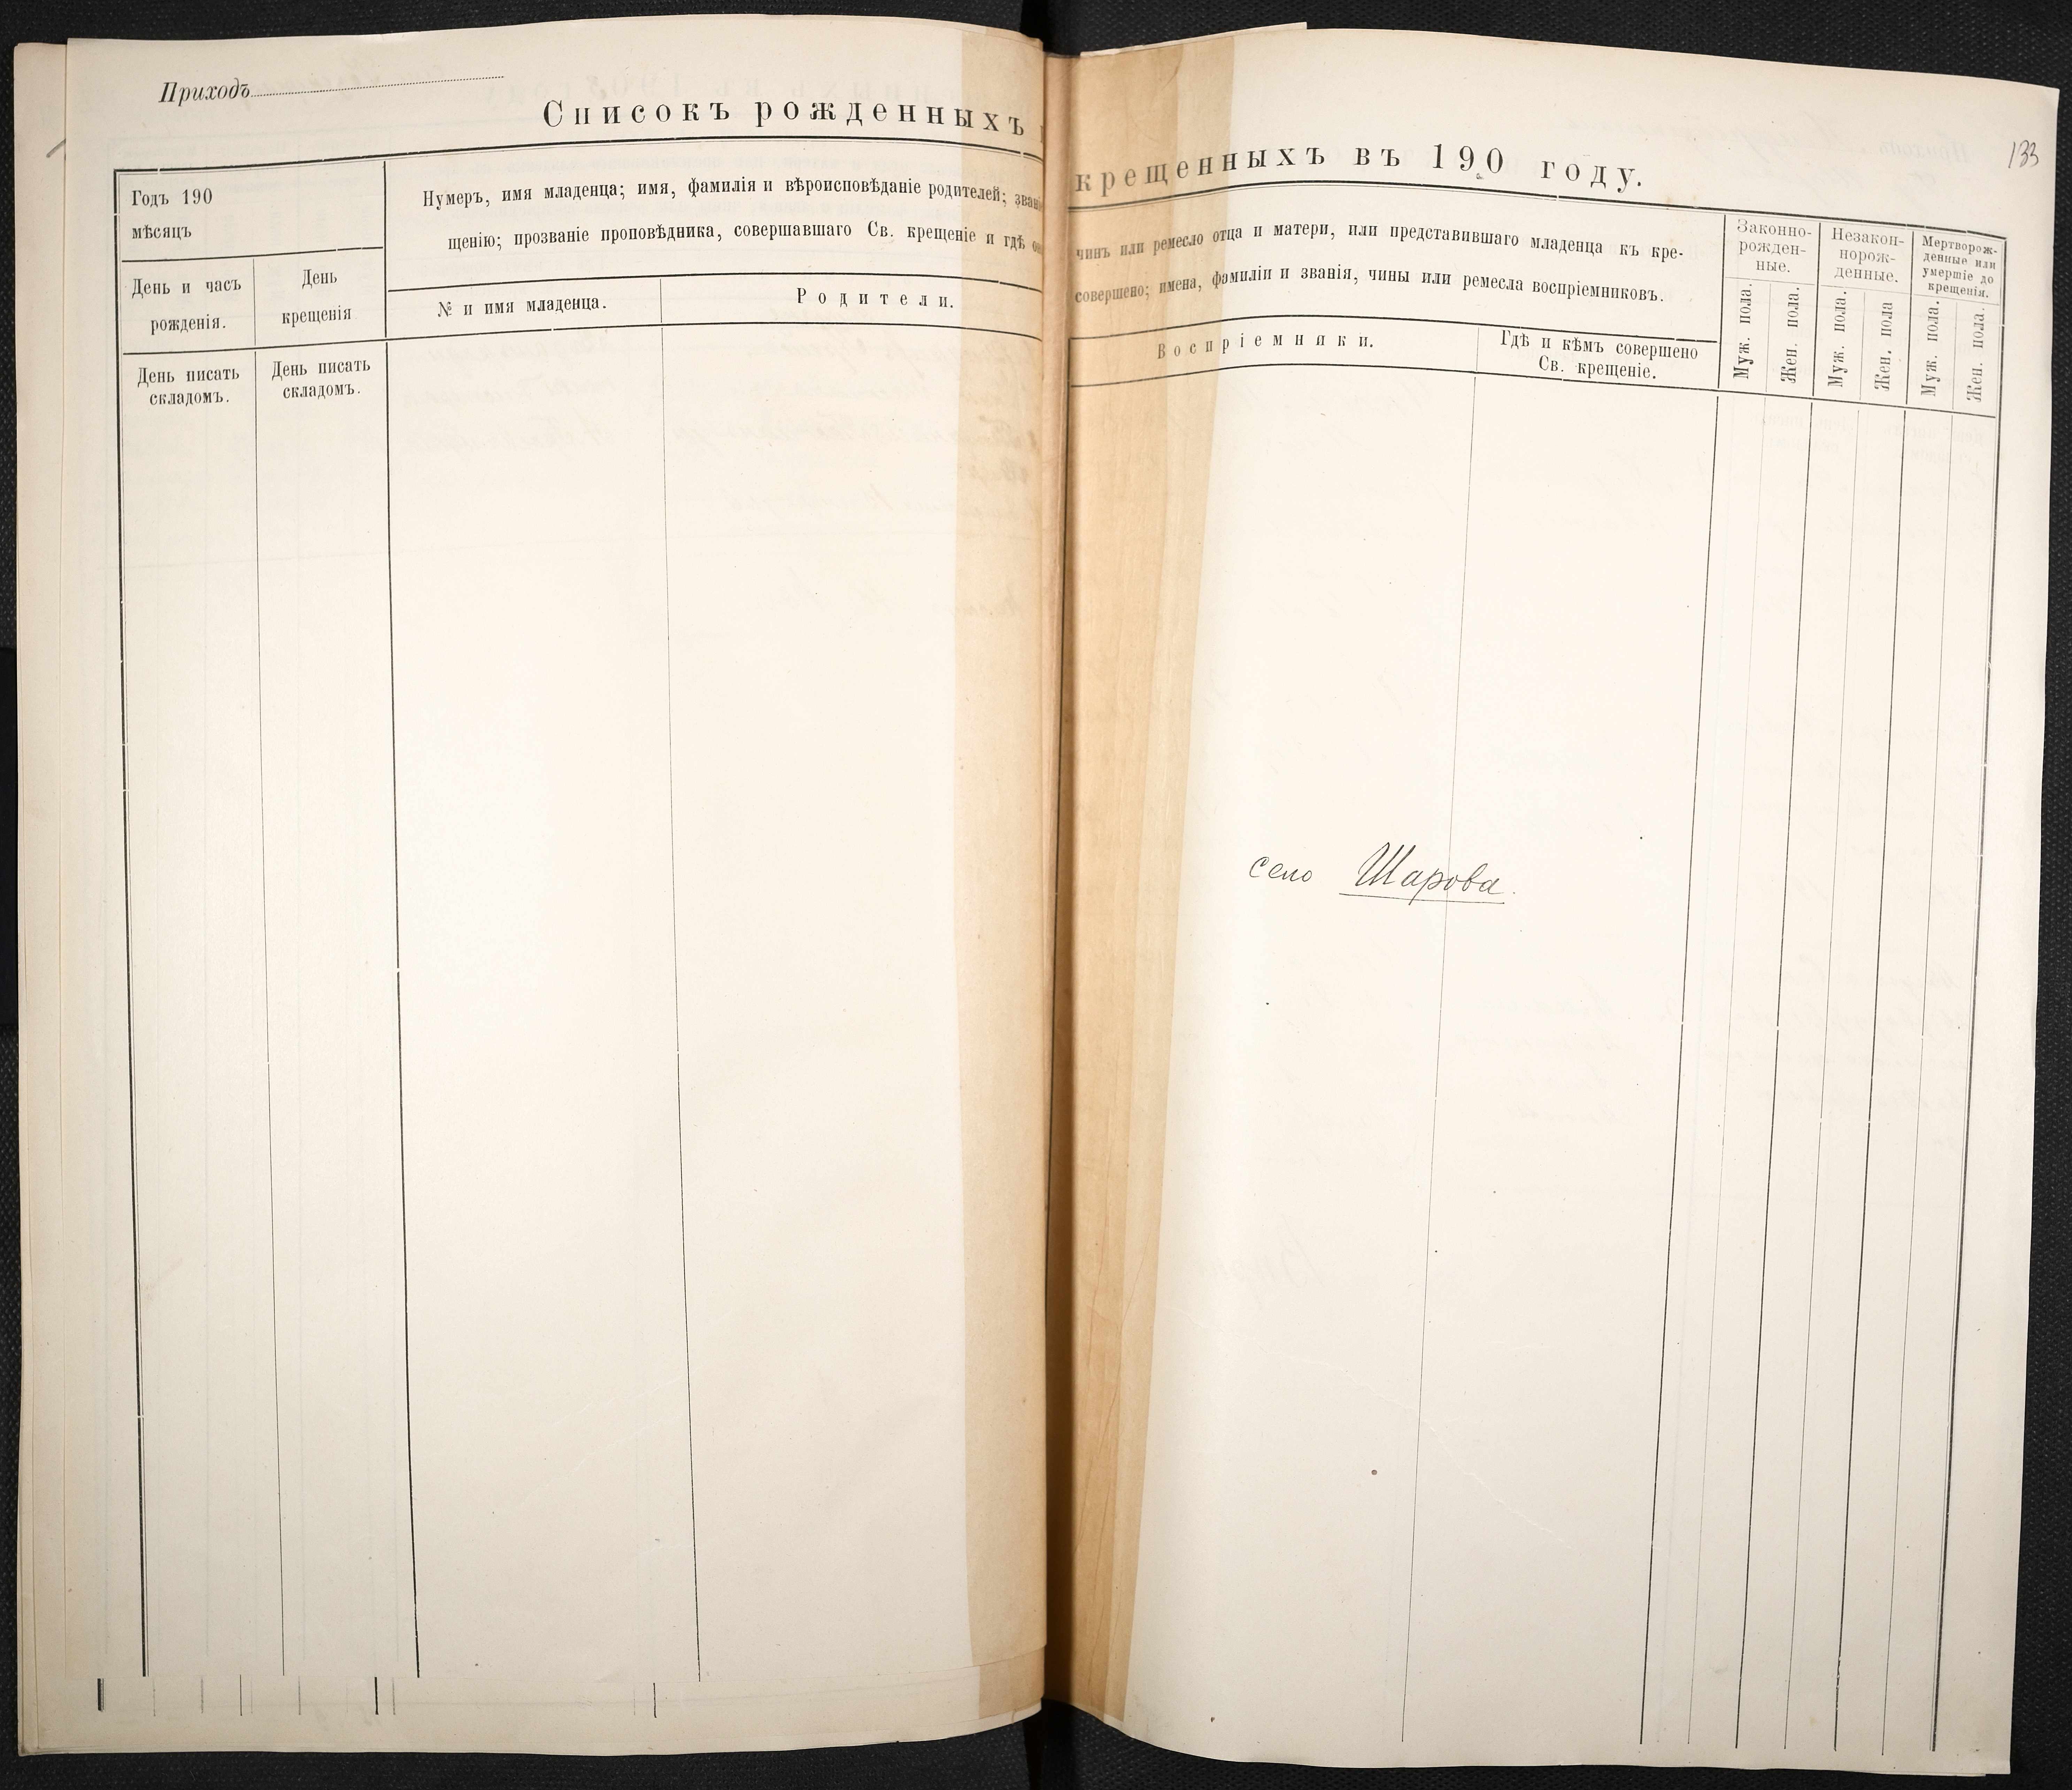 Приходъ
133
Списокъ рожденныхъ крещенныхъ въ 190 году.
Годъ 190
мѣсяцъ
День и часъ
рожденія.
День
крещенія
День писать
складомъ.
День писать
складомъ.
Нумеръ, имя младенца; имя, фамилія и вѣроисповѣданіе родителей; чинъ или ремесло отца и матери, или представившаго младенца къ кре-
щенію; прозваніе проповѣдника, совершавшаго Св. крещеніе и гдѣ совершено; имена, фамиліи и званія, чины или ремесла воспріемниковъ.
№ и имя младенца.
Родители.
Воспріемники.
Гдѣ и кѣмъ совершено
Св. крещеніе.
Законно-
рожден-
ные.
Муж. пола.
Жен. пола.
Незакон-
норож-
денные.
Муж. пола.
Жен. пола
Мертворож-
денные или
умершіе до
крещенія.
Муж. пола.
Жен. пола.
село Шарова.